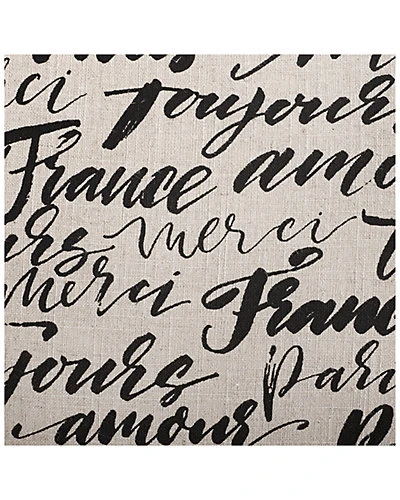 ci toujours
France amo
urs merci
merci Franc
jours Pari
amour P